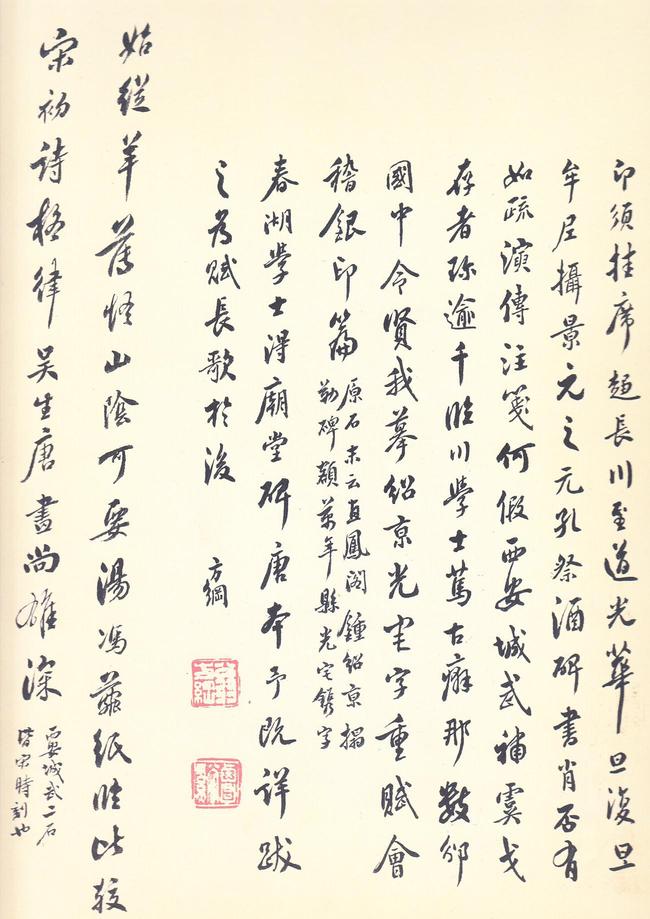 印須挂席趁長川至道光華旦復旦
牟尼攝景元之元孔祭酒碑書肖否有
如疏演傳注箋何假西安城武補虞戈
存者珎逾千臨川學士篤古癖那數邠
國中令賢我摹紹京光宅字重賦會
稽銀印篇
原石末云直鳳閣鍾紹京搨
勒碑額萬年縣光宅鐫字
春湖學士得廟堂碑唐本予既詳跋
之為賦長歌於後
方綱
姑從羊舊怪山陰可要湯馮繭紙臨此較
宋初詩格律吴生唐畫尚雄深
西安城武二石
皆宋時刻也